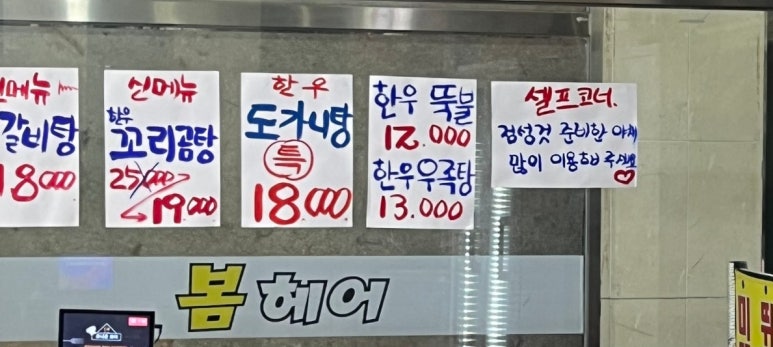 신메뉴
갈비탕
18000
신메뉴
한우
꼬리곰탕
25000
19.000
한우
도가니탕
특
18.000
한우 뚝불
12.000
한우우족탕
13.000
셀프코너.
정성것 준비한 야채
많이 이용해 주세요
봄헤어